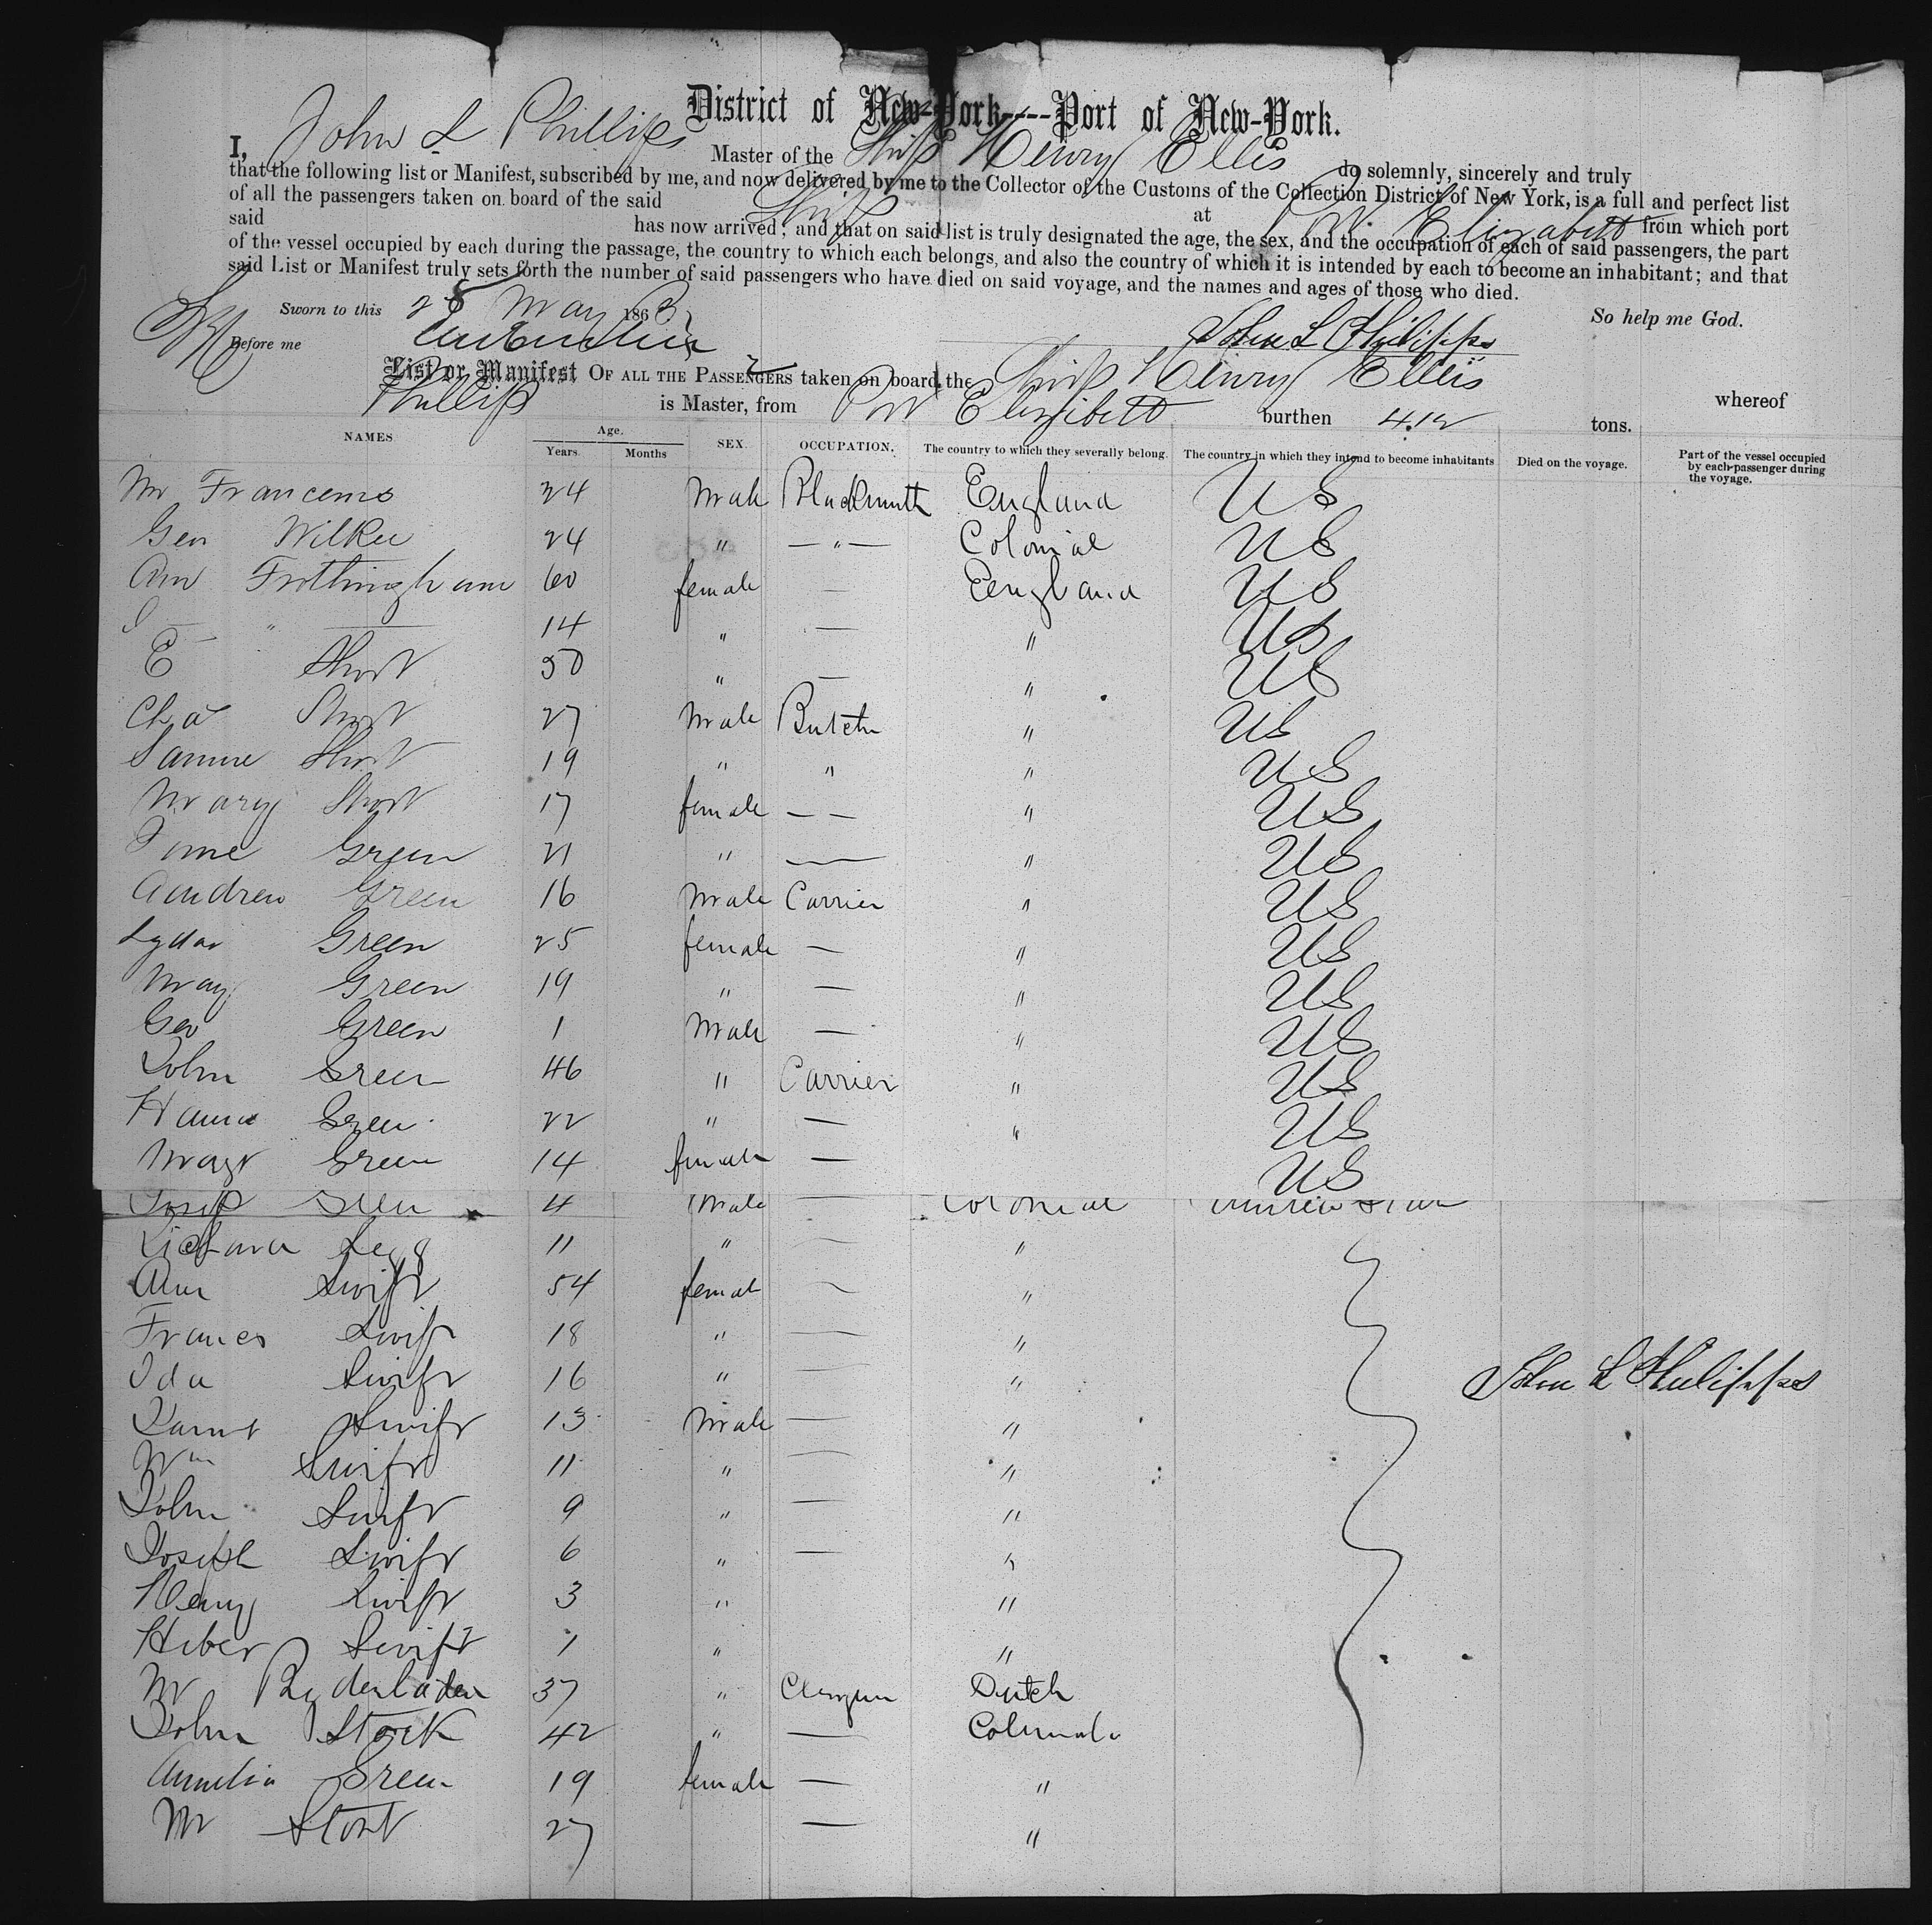 District of New-York----Port of New-York.
I, John L Phillips Master of the Ship Henry Ellis do solemnly, sincerely and truly
that the following list or Manifest, subscribed by me, and now delivered by me to the Collector of the Customs of the Collection District of New York, is a full and perfect list
of all the passengers taken on board of the said Ship at Port Elizabeth from which port
said has now arrived; and that on said list is truly designated the age, the sex, and the occupation of each of said passengers, the part
of the vessel occupied by each during the passage, the country to which each belongs, and also the country of which it is intended by each to become an inhabitant; and that
said List or Manifest truly sets forth the number of said passengers who have died on said voyage, and the names and ages of those who died.
Sworn to this 28 May 1863 So help me God.
Before me John L Phillipps
List or Manifest OF ALL THE PASSENGERS taken on board the Ship Henry Ellis whereof
Phillips is Master, from Port Elizabeth burthen 412 tons.
NAMES Age. Years. Months SEX. OCCUPATION. The country to which they severally belong. The country in which they intend to become inhabitants Died on the voyage. Part of the vessel occupied by each passenger during the voyage.
Mr 24 Male Blacksmith England US
Geo 24 " — " — Colonial US
Ann Frothingham 60 female — England US
— " — 14 " — " US
E Short 50 " — " US
Chas Short 27 Male Butcher " US
Short 19 " " " US
Mary Short 17 female — — " US
Green 21 " — " US
Andrew Green 16 Male Carrier " US
Green 25 female — " US
May Green 19 " — " US
Geo Green 1 Male — " US
John Green 46 " Carrier " US
Green 22 " — " US
Green 14 female — " US
Green 4 Male — Colonial
Legg 11 " — "
Ann Swift 54 femal — "
Frances Swift 18 " — "
Ida Swift 16 " — " John L Phillipps
Swift 13 Male — "
Wm Swift 11 " — "
John Swift 9 " — "
Joseph Swift 6 " — "
Henry Swift 3 " "
Heber Swift 1 " "
Mr 37 " Dutch
John Stock 42 " —
Amelia Green 19 female — "
Mr 27 — "